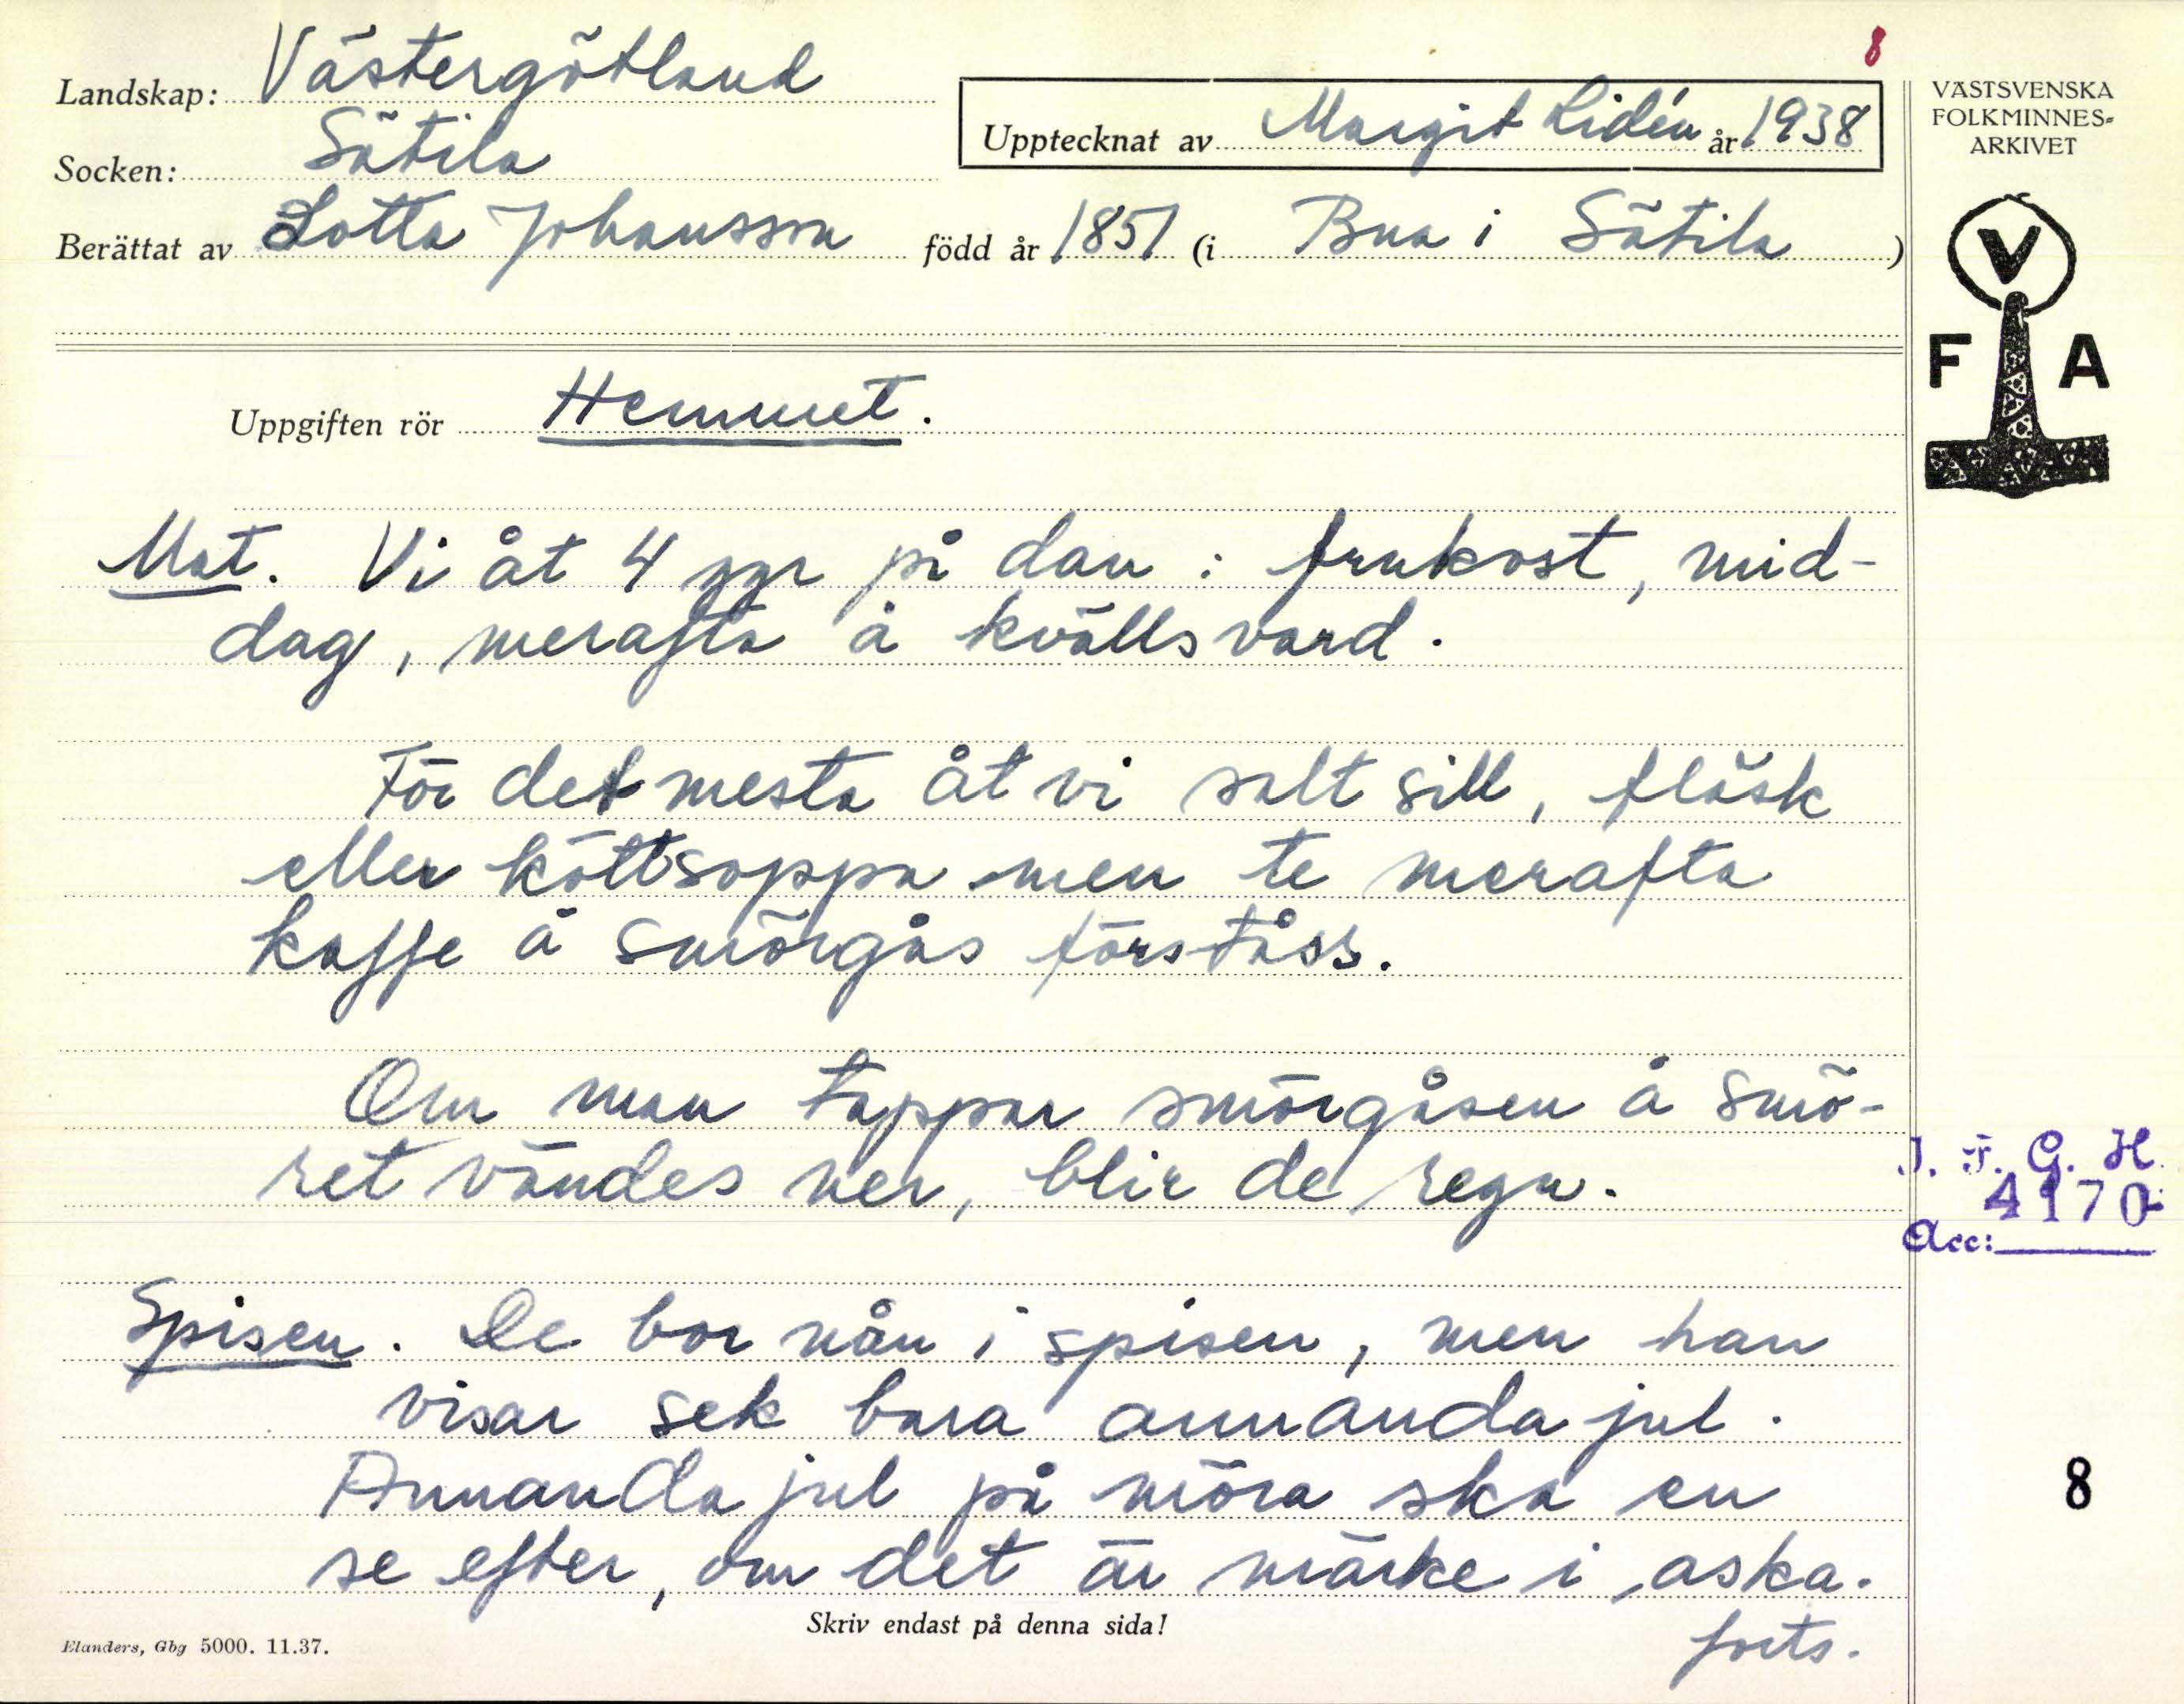 8
Landskap: Västergötland
Socken: Sätila
Upptecknat av Margit Lidén år 1938
Berättat av Lotta Johansson född år 1851 (i Bua i Sätila )
VÄSTSVENSKA
FOLKMINNES-
ARKIVET
V
F A
Uppgiften rör Hemmet.
Mat. Vi åt 4 ggr på dan : frukost, mid-
dag, merafta å kvällsvard.
För det mesta åt vi salt sill, fläsk
eller köttsoppa men te merafta
kaffe å smörgås förståss.
Om man tappar smörgåsen å smö-
ret vändes ner, blir de regn.
I. F. G. H.
4170
Acc:
Spisen. De bor nån i spisen, men han
visar sek bara annanda jul.
Annanda jul på möra ska en
se efter, om det är märke i aska.
forts.
8
Skriv endast på denna sida!
Elanders, Gbg 5000. 11.37.